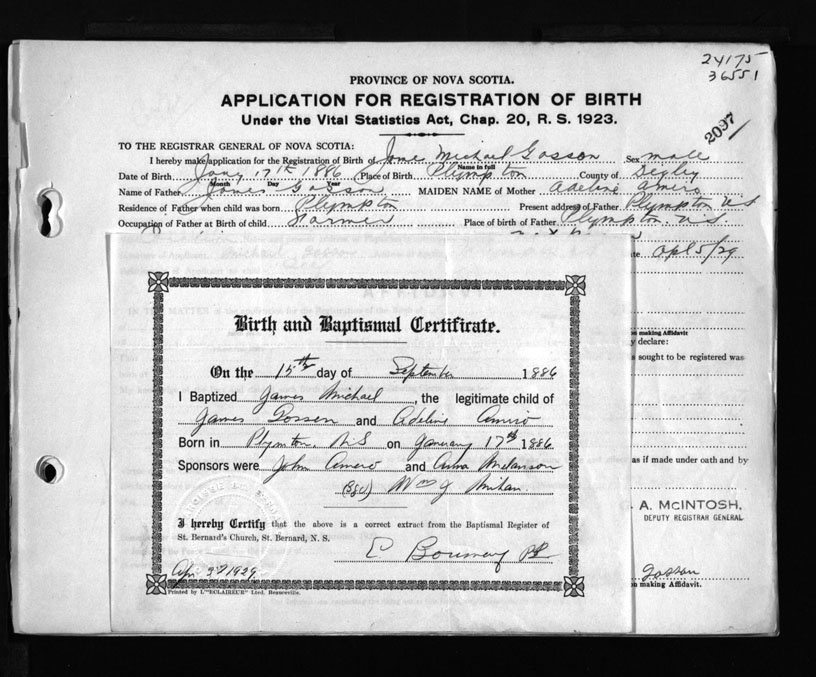 24175
36551
2097
PROVINCE OF NOVA SCOTIA.
APPLICATION FOR REGISTRATION OF BIRTH
Under the Vital Statistics Act, Chap. 20, R. S. 1923.
TO THE REGISTRAR GENERAL OF NOVA SCOTIA:
I hereby make application for the Registration of Birth of James Michael Gosson Sex male
Name in full
Date of Birth Jany 17th 1886 Place of Birth Plympton County of Digby
Month Day Year
Name of Father James Gosson MAIDEN NAME of Mother Adeline Amiro
Residence of Father when child was born Plympton Present address of Father Plympton N S
Occupation of Father at Birth of child Farmer Place of birth of Father Plympton. N.S.
Apl 5/29
AFFIDAVIT
making Affidavit
y declare:
sought to be registered was
as if made under oath and by
A. McINTOSH,
DEPUTY REGISTRAR GENERAL
Gosson
making Affidavit.
Birth and Baptismal Certificate.
On the 15th day of September 1886
I Baptized James Michael, the legitimate child of
James Gossen and Adeline Amiro
Born in Plymton. N S on January 17th 1886
Sponsors were John Amero and Anna Melanson
(Sgd) Wm J
I hereby Certify that the above is a correct extract from the Baptismal Register of
St. Bernard's Church, St. Bernard, N. S.
Apr 3rd 1929
Printed by L'"ECLAIREUR" Ltd. Beauceville.